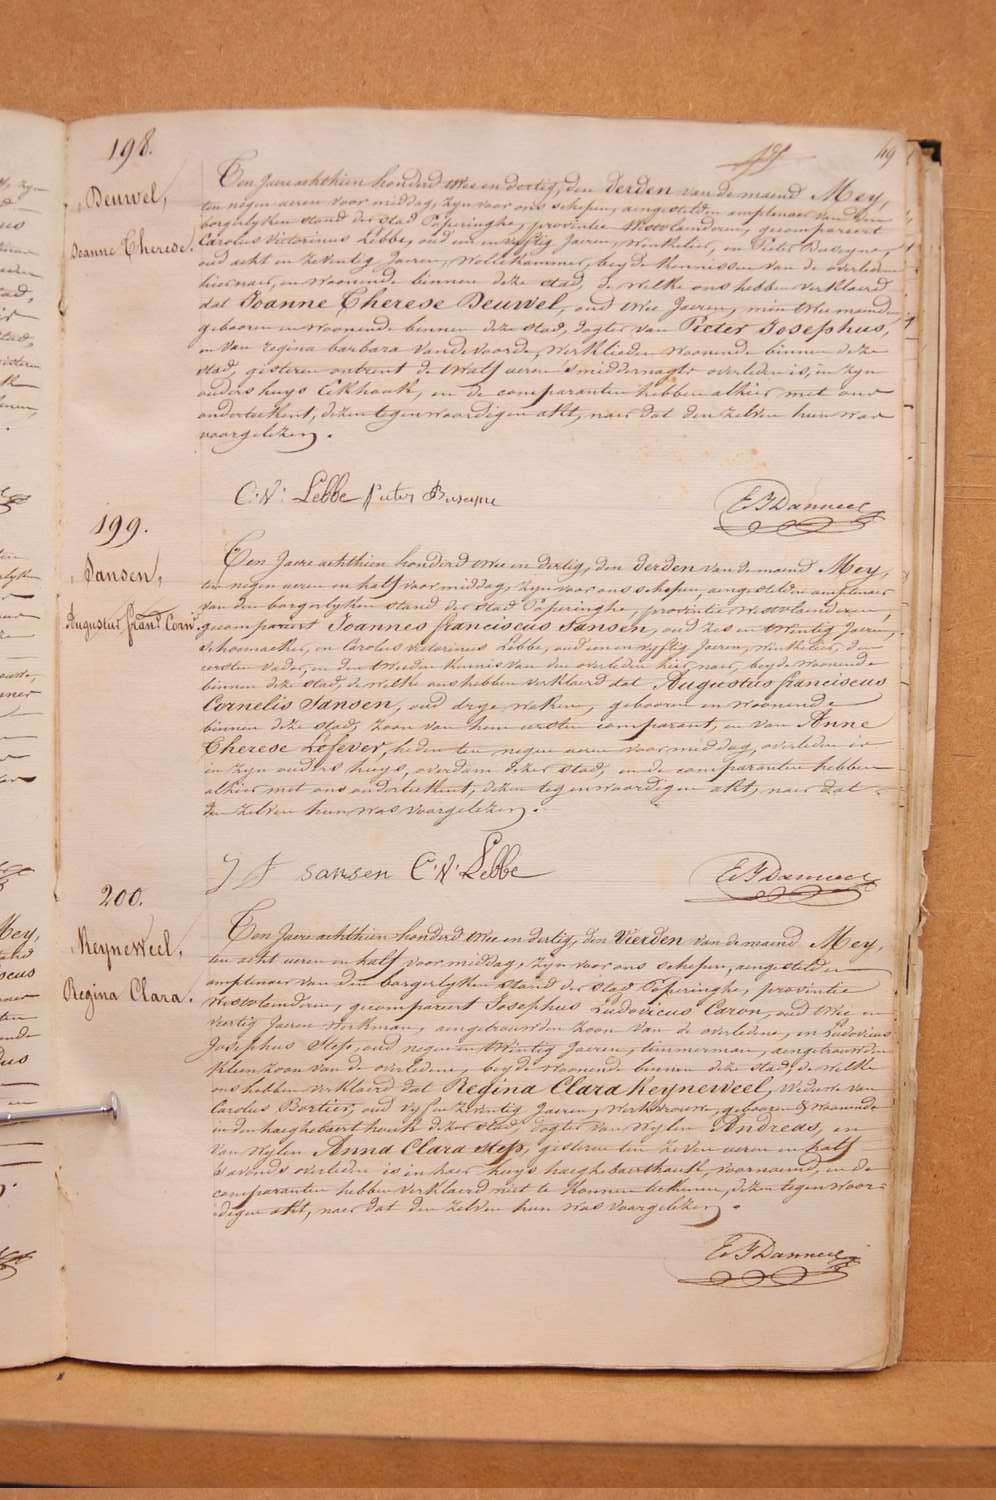 198.
49
Deuwel,
Joanne Therese.
Ten Jaere achthien honderd twee en dertig, den derden van de maend Mey,
ten negen ueren voor middag, zyn voor ons schepen, aengestelden amptenaer van den
borgerlyken stand der stad Poperinghe, provintie Westvlaenderen, gecompareert
Carolus Victorinus Lebbe, oud een en vyftig Jaeren, winkelier, en Pieter Buseyne,
oud acht en zeventig Jaeren, wollekammer, beyde kennissen van de overledene
hier naer, en woonende binnen deze stad, de welke ons hebben verklaerd
dat Joanne Therese Deuwel, oud twee Jaeren, min twee maenden
gebooren en woonende binnen deze stad, dogter van Pieter Josephus,
en van regina barbara Vandevoorde, werklieden woonende binnen deze
stad, gisteren ontrent de twalf ueren 's middernagts overleden is, in zyn
ouders huys Eekhoek, en de comparanten hebben alhier met ons
onderteekent, dezen tegenwoordigen akt, naer dat den zelven hun was
voorgelezen.
C.V. Lebbe Pieter Buseyne
199.
Jansen,
Augustus fran.s Corn.s
Ten Jaere achthien honderd twee en dertig, den derden van de maend Mey,
ten negen ueren en half voor middag, zyn voor ons schepen, aengestelden amptenaer
van den borgerlyken stand der stad Poperinghe, provintie Westvlaenderen,
gecompareert Joannes franciscus Jansen, oud zes en twintig Jaeren,
schoemaeker, en Carolus Victorinus Lebbe, oud een en vyftig Jaeren, winkelier, den
eersten vader, en den tweeden kennis van den overleden hier naer, beyde woonende
binnen deze stad, de welke ons hebben verklaerd dat Augustus franciscus
Cornelis Jansen, oud drye weken, gebooren en woonende
binnen deze stad, zoon van hem eersten comparant, en van Anne
Therese Lefever, heden ten negen ueren voor middag, overleden is
in zyn ouders huys, overdam dezer stad, en de comparanten hebben
alhier met ons onderteekent, dezen tegenwoordigen akt, naer dat
den zelven hun was voorgelezen.
J F Jansen C.V. Lebbe
200.
Reyneweel,
Regina Clara.
Ten Jaere achthien honderd twee en dertig, den vierden van de maend Mey,
ten acht ueren en half voor middag, zyn voor ons schepen, aengestelden
amptenaer van den borgerlyken stand der stad Poperinghe, provintie
Westvlaenderen, gecompareert Josephus Ludovicus Caron, oud twee en
veertig Jaeren werkman, aengetrouwden zoon van de overledene, en Ludovicus
Josephus Stess, oud negen en twintig Jaeren, timmerman, aengetrouwden
kleinzoon van de overledene, beyde woonende binnen deze stad, de welke
ons hebben verklaerd dat Regina Clara Reyneweel, weduwe van
Carolus Bortier, oud vyf en zeventig Jaeren, werkvrouw, gebooren & woonende
in den haeghebaert houck dezer stad, dogter van wylen Andreas, en
van wylen Anna Clara Stess, gisteren ten zeven ueren en half
's avonds overleden is in haer huys haeghebaerthouck, voornoemd, en de
comparanten hebben verklaerd niet te konnen teekenen, dezen tegenwoor-
digen akt, naer dat den zelven hun was voorgelezen.